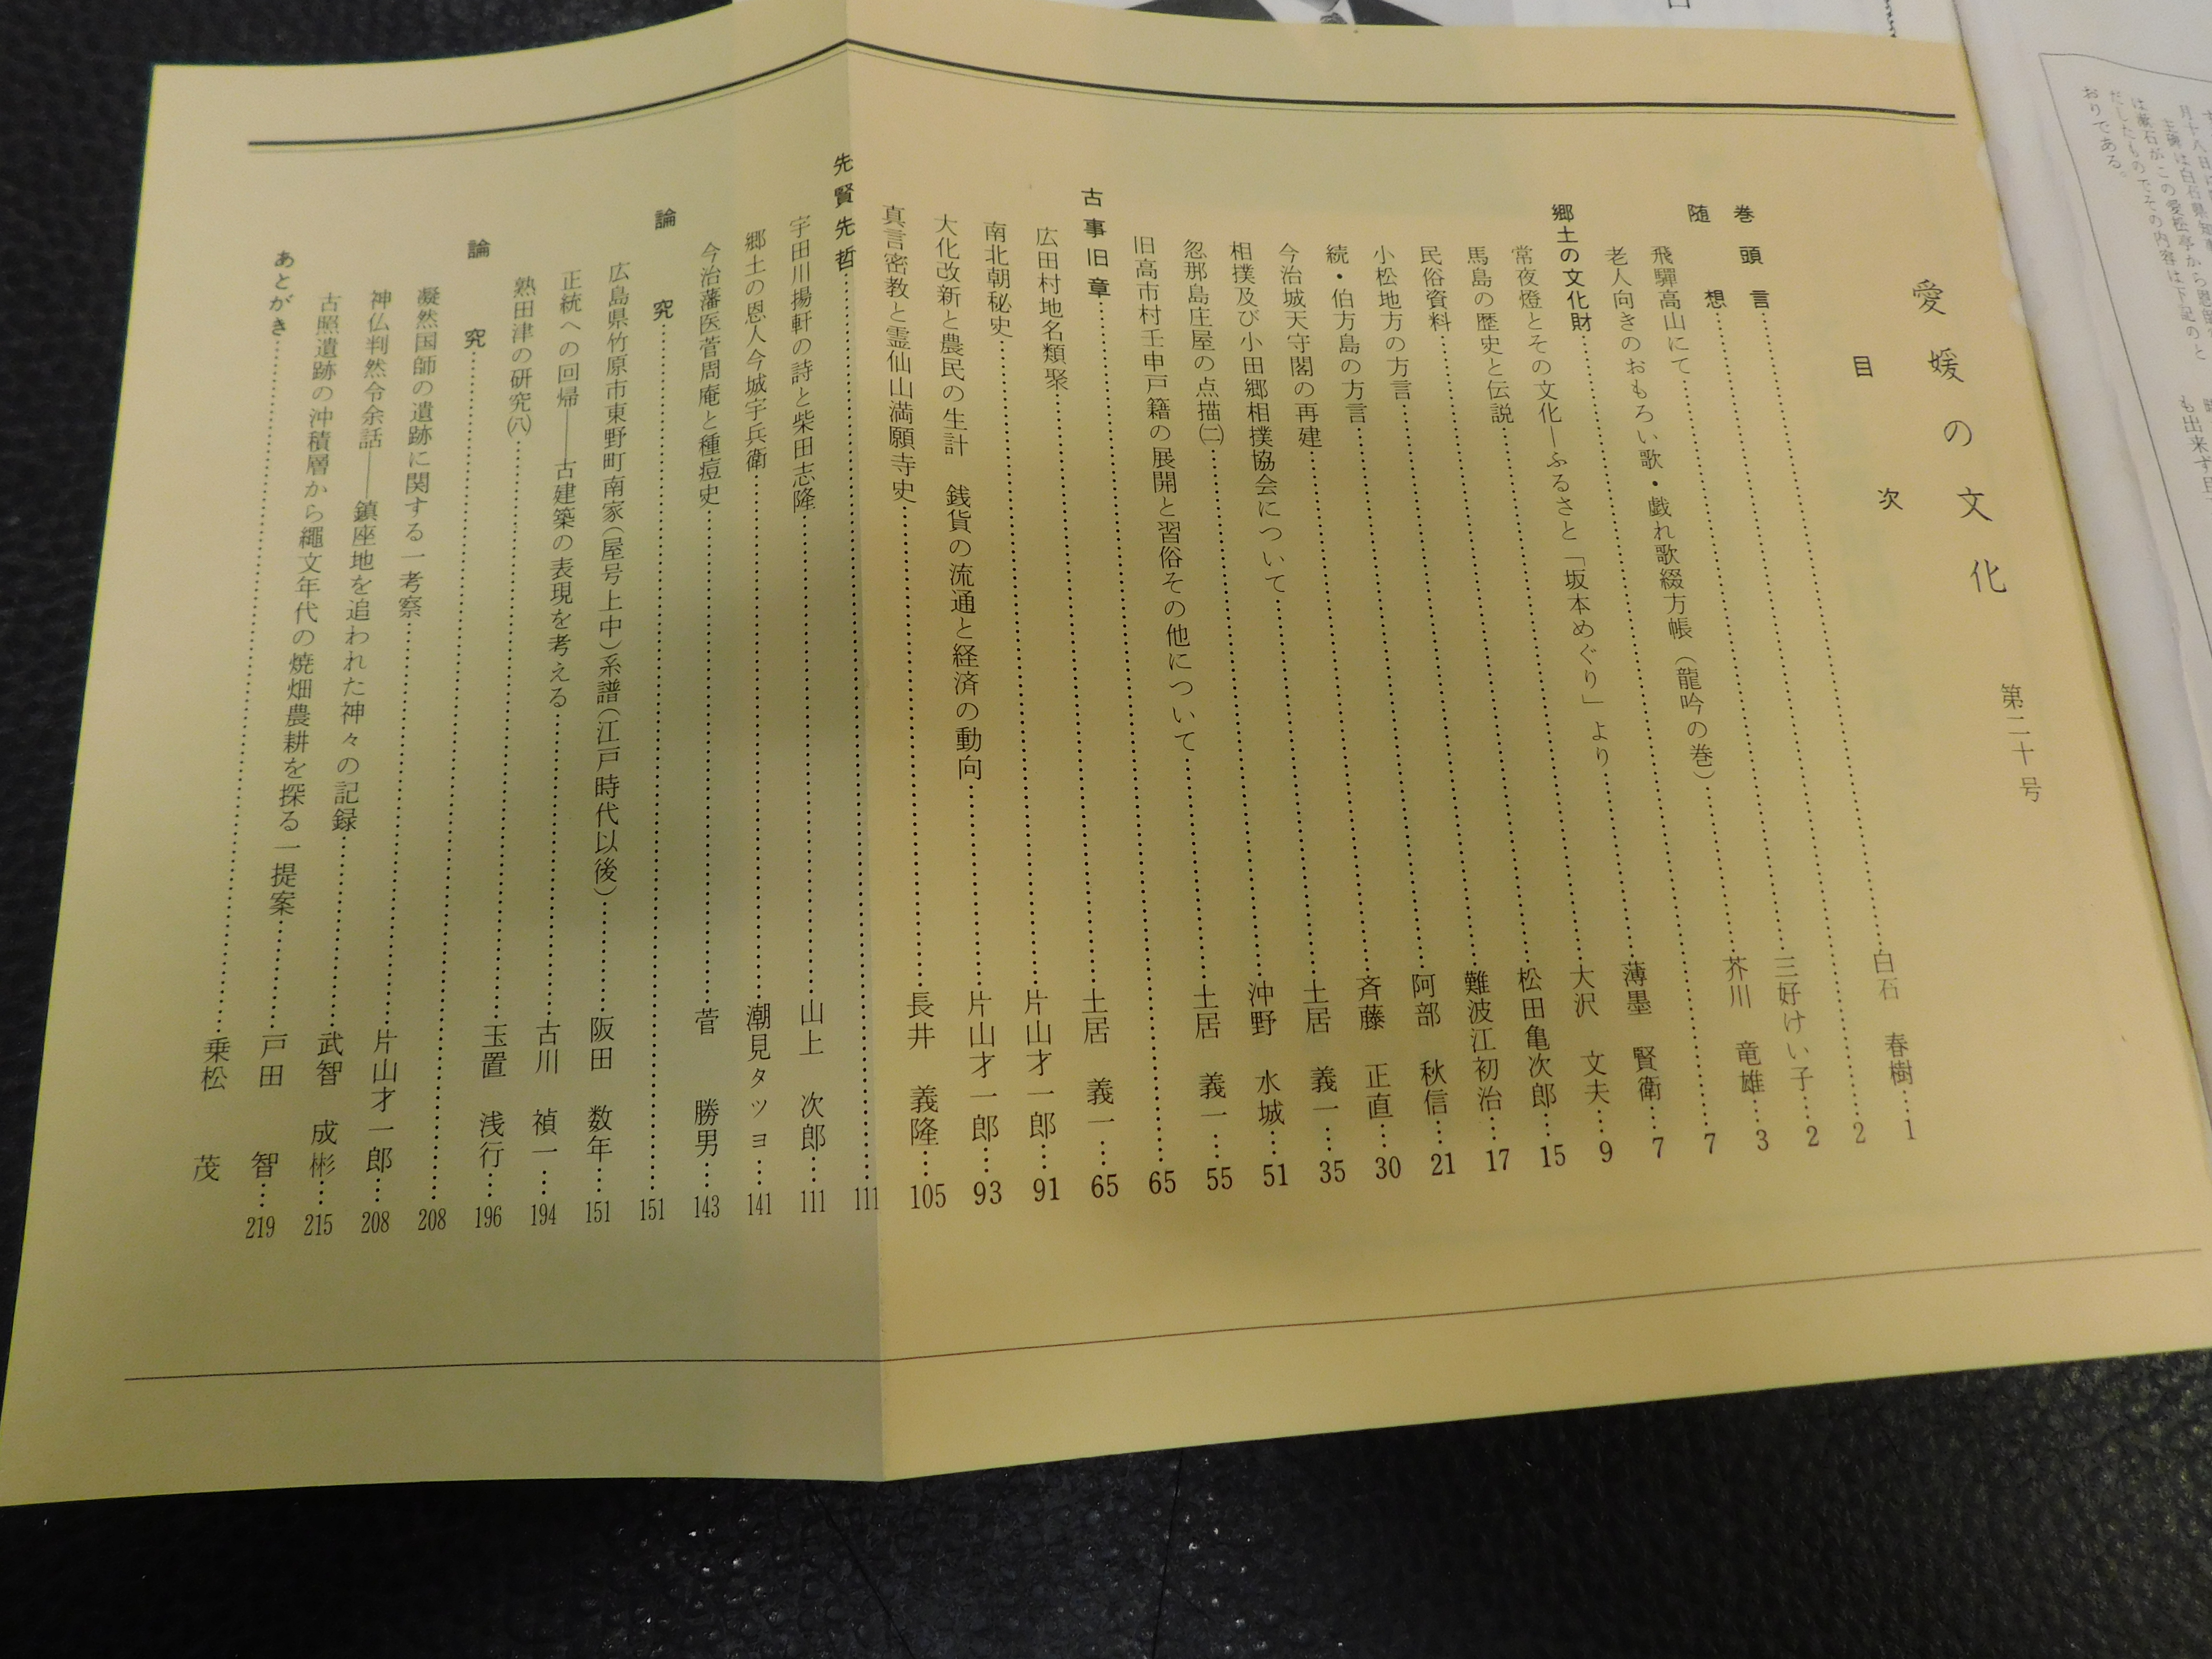 愛媛の文化 第二十号
目次
巻頭言……白石 春樹…1
随想……2
飛驒高山にて……三好けい子…2
老人向きのおもろい歌・戯れ歌綴方帳（龍吟の巻）……芥川 竜雄…3
郷土の文化財……7
常夜燈とその文化―ふるさと「坂本めぐり」より……薄墨 賢衛…7
馬島の歴史と伝説……大沢 文夫…9
民俗資料……松田亀次郎…15
小松地方の方言……難波江初治…17
続・伯方島の方言……阿部 秋信…21
今治城天守閣の再建……斉藤 正直…30
相撲及び小田郷相撲協会について……土居 義一…35
忽那島庄屋の点描㈡……沖野 水城…51
旧高市村壬申戸籍の展開と習俗その他について……土居 義一…55
古事旧章……65
広田村地名類聚……土居 義一…65
南北朝秘史……片山才一郎…91
大化改新と農民の生計 銭貨の流通と経済の動向……片山才一郎…93
真言密教と霊仙山満願寺史……長井 義隆…105
先賢先哲……111
宇田川揚軒の詩と柴田志隆……山上 次郎…111
郷土の恩人今城宇兵衛……潮見タツヨ…141
今治藩医菅周庵と種痘史……菅 勝男…143
論究……151
広島県竹原市東野町南家（屋号上中）系譜（江戸時代以後）……阪田 数年…151
正統への回帰――古建築の表現を考える……古川 禎一…194
熟田津の研究㈧……玉置 浅行…196
論究……208
凝然国師の遺跡に関する一考察……片山才一郎…208
神仏判然令余話――鎮座地を追われた神々の記録……武智 成彬…215
古照遺跡の沖積層から縄文年代の焼畑農耕を探る一提案……戸田 智…219
あとがき……乗松 茂
は漱石がこの愛松亭から恩師
だしたものでその内容は下記のと
おりである。
も出来ず